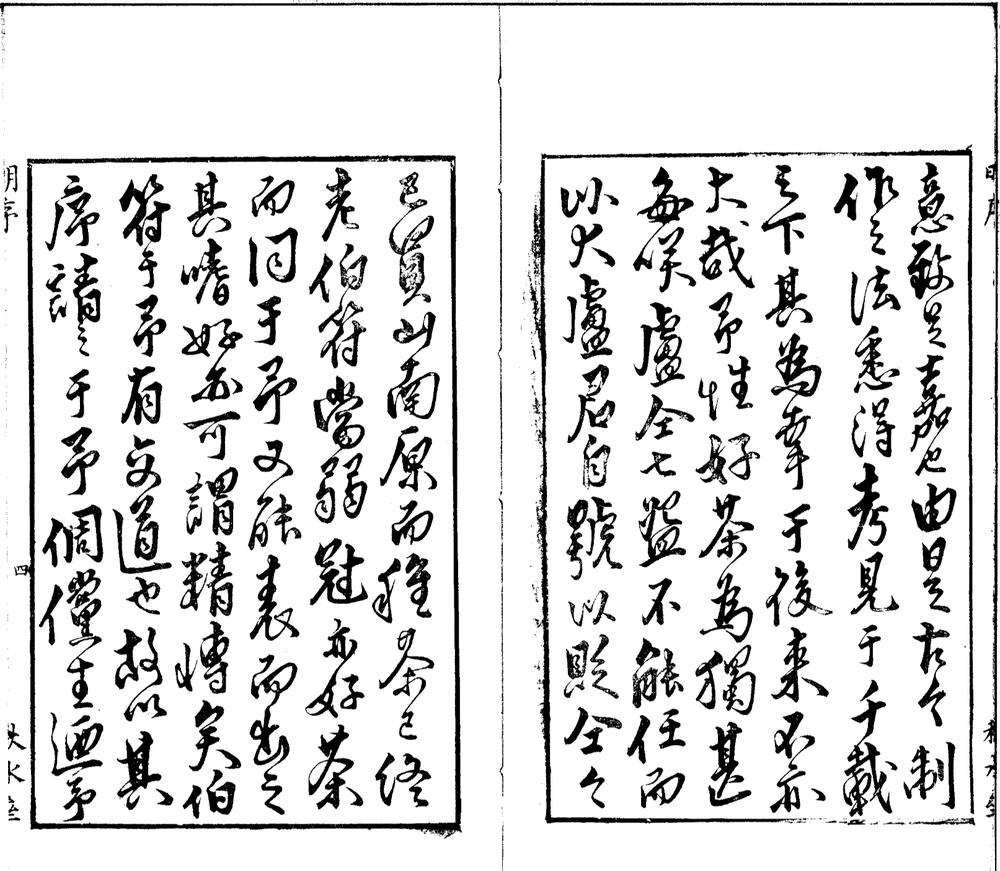 意致是嘉也由是古今制
作之法悉得考見于千載
之下其為幸于後來不亦
大哉予性好茶為獨甚
每咲盧仝七盌不能任而
以大盧君自號以貶仝今
已買山南原而種茶已終
老伯符當弱冠亦好茶
而同于予又能表而出之
其嗜好亦可謂精博矣伯
符于予有交道也故以其
序請之于予倜儻生迺予
四